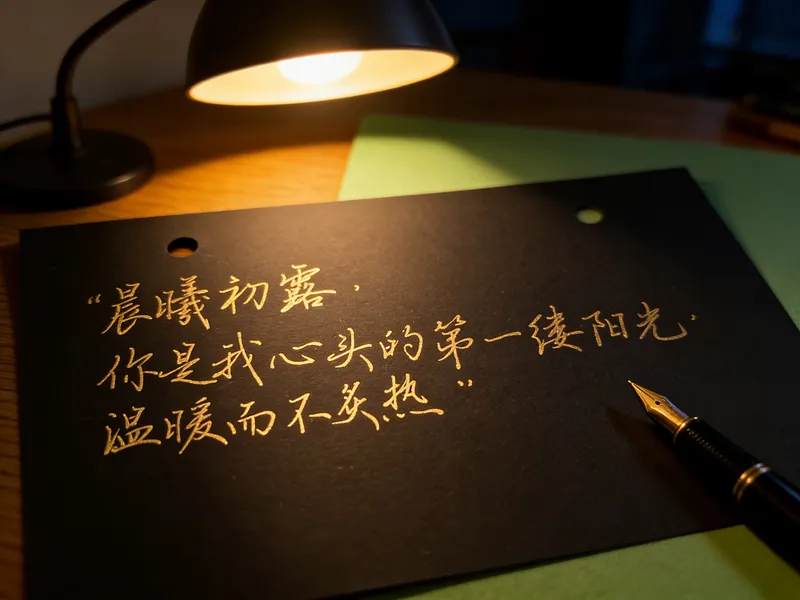 “晨曦初露，
你是我心头的第一缕阳光.
温暖而不炙热”